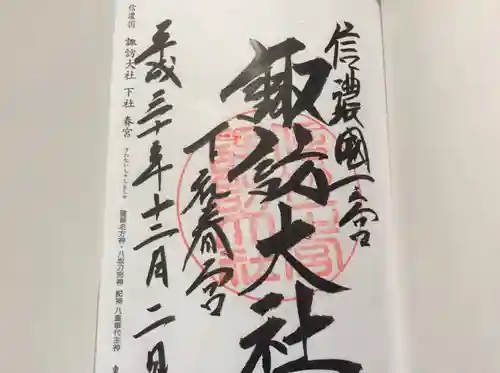 信濃國一宮
諏訪大社
下社春宮
平成三十年十二月二日
信濃国
諏訪大社 下社 春宮
すわたいしゃしもしゃ
建御名方神・八坂刀売神 配神 八重事代主神
東